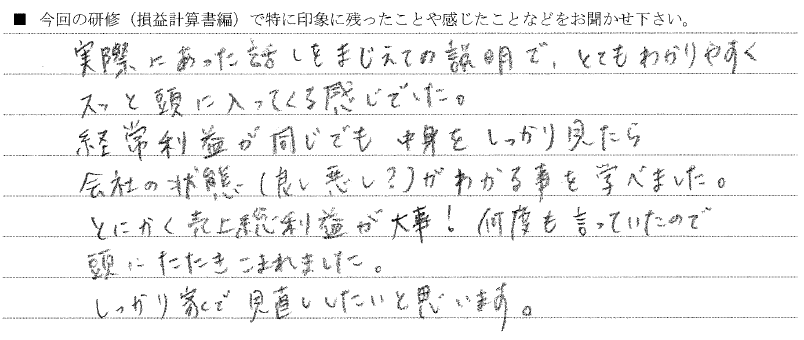 ■ 今回の研修（損益計算書編）で特に印象に残ったことや感じたことなどをお聞かせ下さい。
実際にあった話しをまじえての説明で、とてもわかりやすく
スッと頭に入ってくる感じでした。
経常利益が同じでも中身をしっかり見たら
会社の状態(良し悪し？)がわかる事を学べました。
とにかく売上総利益が大事！何度も言っていたので
頭にたたきこまれました。
しっかり家で見直ししたいと思います。